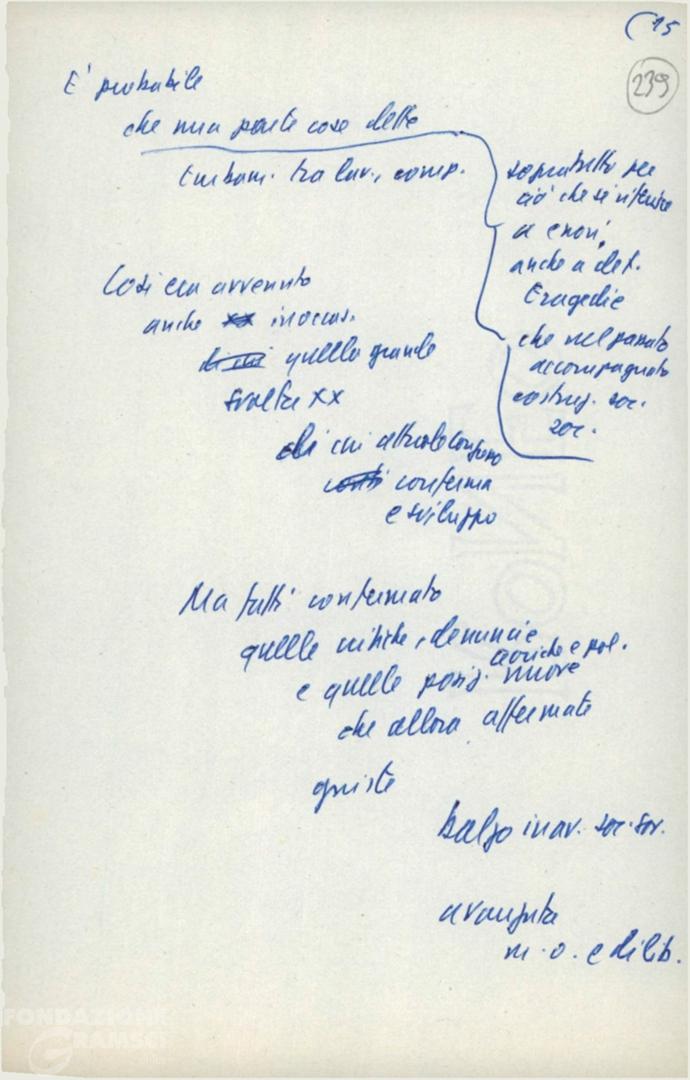 (15
239
E' probabile
che una parte cose dette
turbam. tra lav., comp.
soprattutto per
ciò che si riferisce
a errori,
anche a det.
tragedie
che nel passato
accompagnato
costruz. soc.
soc.
Così era avvenuto
anche xx in occas.
di cui quella grande
svolta XX
di cui attuale Congresso
conferma
e sviluppo
Ma fatti confermato
quelle critiche, denuncie
teoriche e pol.
e quelle posiz. nuove
che allora affermate
giuste
balzo in av. soc. sov.
avanzata
m. o. e di lib.
FONDAZIONE
GRAMSCI